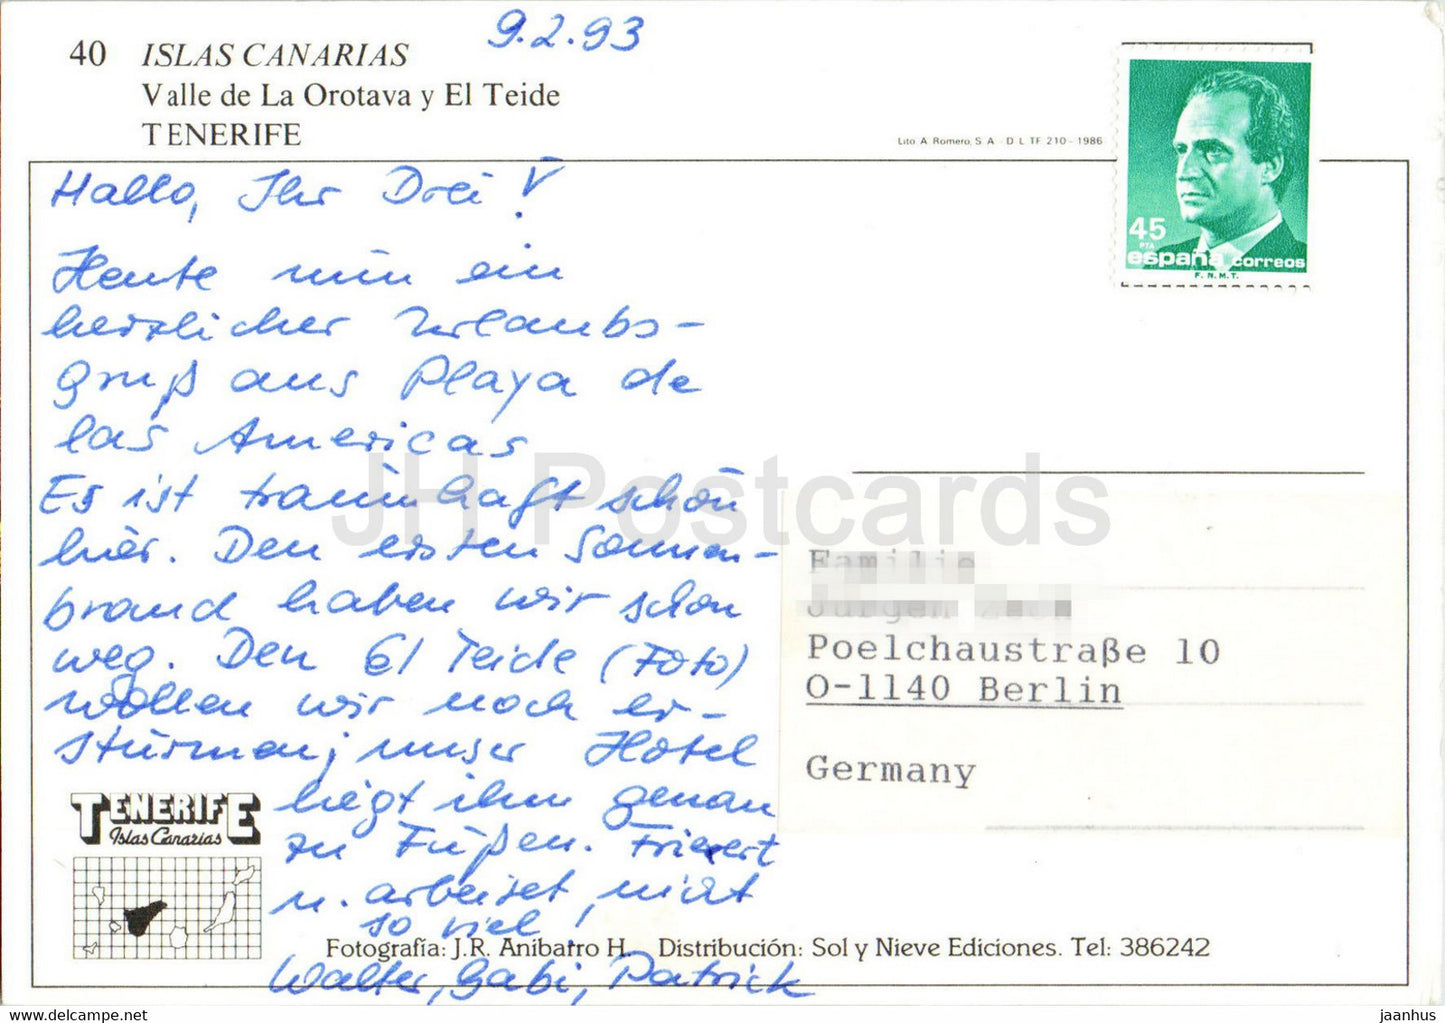 9.2.93
40 ISLAS CANARIAS
Valle de La Orotava y El Teide
TENERIFE
Lito A Romero, S A - D L TF 210 - 1986
45
PTA
españa correos
F.N.M.T.
Hallo, Ihr Drei!
Heute nun ein
herzlicher Urlaubs-
gruß aus Playa de
las Americas
Es ist traumhaft schön
hier. Den ersten Sonnen-
brand haben wir schon
weg. Den El Teide (Foto)
wollen wir noch er-
stürmen; unser Hotel
liegt ihm genau
zu Füßen. Frieret
u. arbeitet, nicht
so viel!
Walter, Gabi, Patrick
JH Postcards
Familie
Poelchaustraße 10
O-1140 Berlin
Germany
TENERIFE
Islas Canarias
Fotografía: J.R. Anibarro H. Distribución: Sol y Nieve Ediciones. Tel: 386242
hip.postcardmuseum@seznam.cz
jaanhus